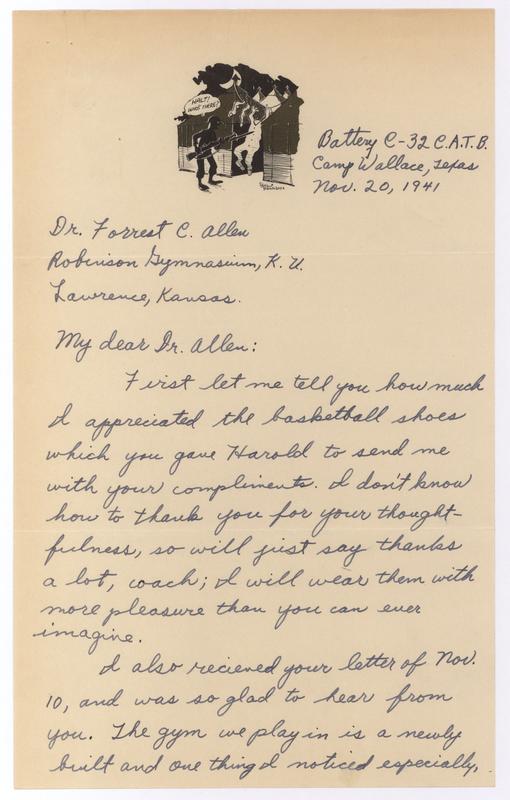 "HALT!
WHO'S THERE?
Battery C-32 C.A.T.B.
Camp Wallace, Texas
Nov. 20, 1941
Dr. Forrest C. Allen
Robinson Gymnasium, K.U.
Lawrence, Kansas.
My dear Dr. Allen:
First let me tell you how much
I appreciated the basketball shoes
which you gave Harold to send me
with your compliments. I don't know
how to thank you for your thought-
fulness, so will just say thanks
a lot, coach; I will wear them with
more pleasure than you can ever
imagine.
I also recieved your letter of Nov.
10, and was so glad to hear from
you. The gym we play in is a newly
built and one thing I noticed especially,